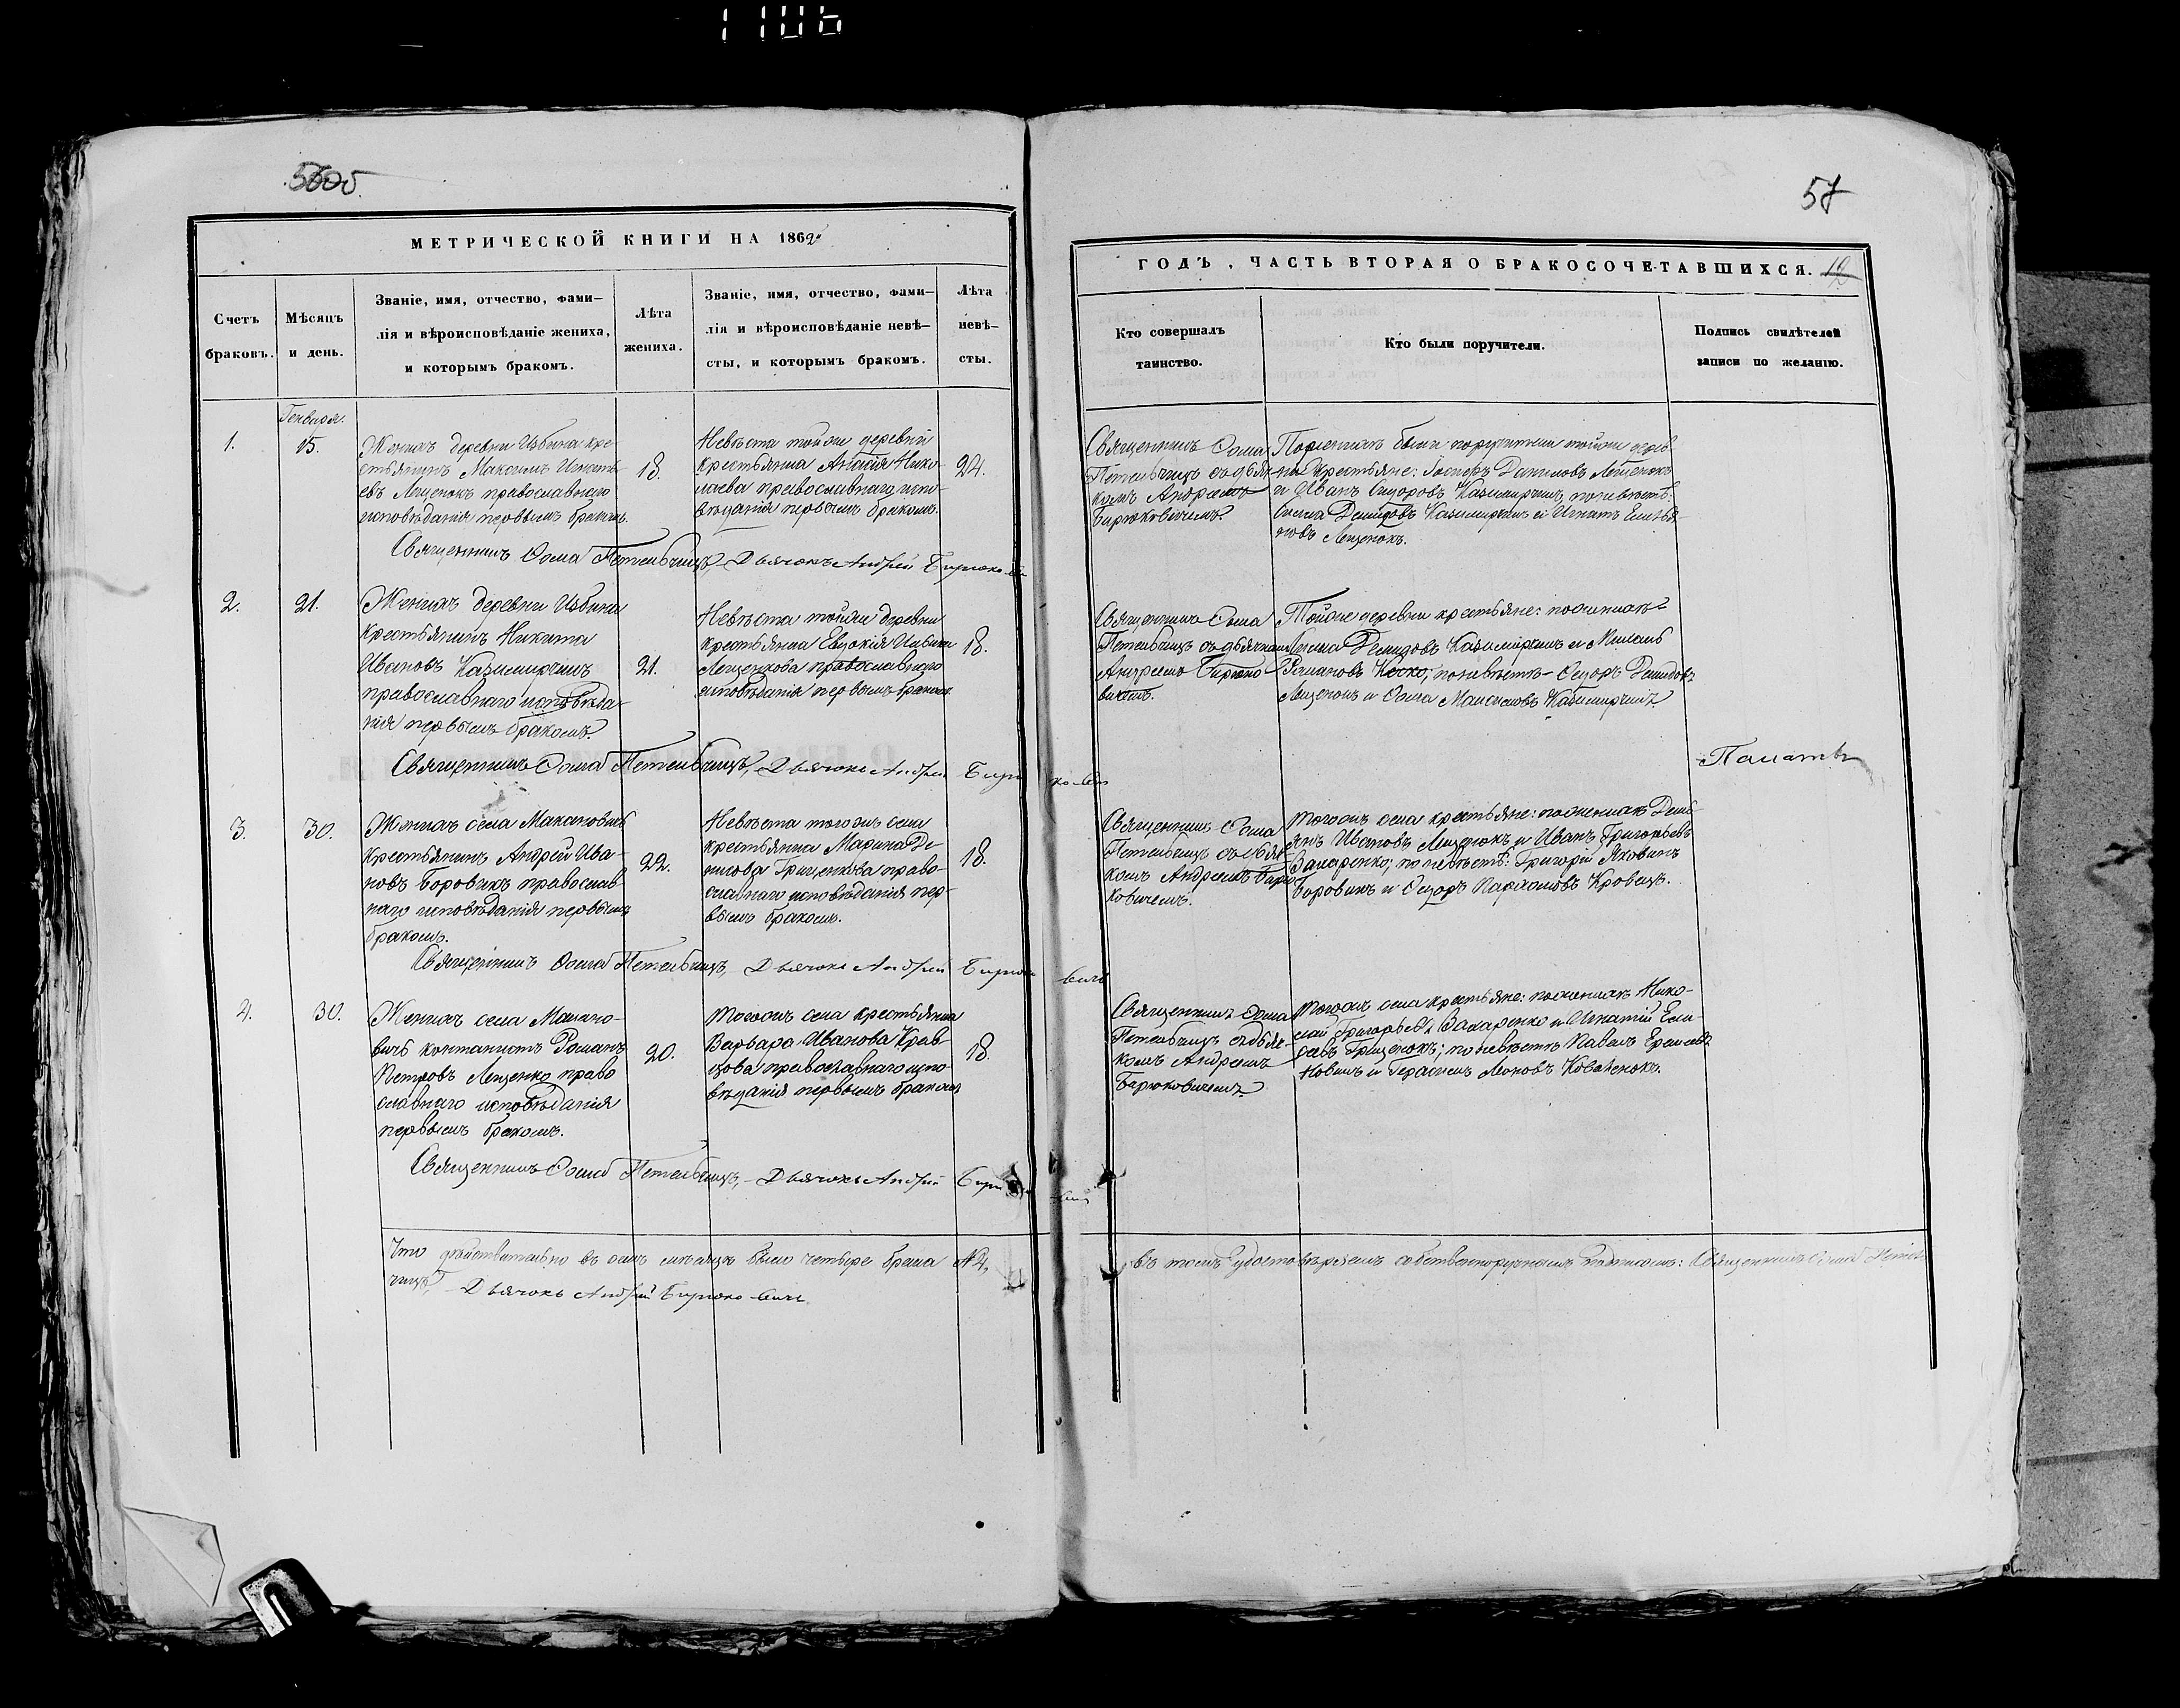 1106
56об.
57
МЕТРИЧЕСКОЙ КНИГИ НА 1862
ГОДЪ, ЧАСТЬ ВТОРАЯ О БРАКОСОЧЕТАВШИХСЯ. 12
Счетъ
браковъ.
Мѣсяцъ
и день.
Званіе, имя, отчество, фами-
лія и вѣроисповѣданіе жениха,
и которымъ бракомъ.
Лѣта
жениха.
Званіе, имя, отчество, фами-
лія и вѣроисповѣданіе невѣ-
сты, и которымъ бракомъ.
Лѣта
невѣ-
сты.
Кто совершалъ
таинство.
Кто были поручители.
Подпись свидѣтелей
записи по желанію.
Генваря.
1.
15.
Женихъ деревни Избина кре-
стьянинъ Максимъ Игнать-
евъ Лященокъ православнаго
исповѣданія первымъ бракомъ.
18.
Невѣста тойже деревни
крестьянка Анасія Нико-
лаева православнаго испо-
вѣданія первымъ бракомъ.
24.
Священникъ Ѳома
съ дьяч-
комъ Андреемъ
Бирюковичемъ.
По женихѣ были поручители тойже дерев-
ни крестьяне: Іосифъ Даниловъ Лященокъ
и Иванъ Сидоровъ Казимирчикъ, по невѣстѣ:
Демидовъ Казимирчикъ и Игнатъ Емелья-
новъ Лященокъ.
Священникъ Ѳома Дьячокъ Андрей Бирюкович
2.
21.
Женихъ деревни Избина
крестьянинъ Никита
Ивановъ Казимирчикъ
православнаго исповѣда-
нія первымъ бракомъ.
21.
Невѣста тойже деревни
крестьянка Евдокія
Лященкова православнаго
исповѣданія первымъ бракомъ
18.
Священникъ Ѳома
съ дьячкомъ
Андреемъ Бирюко-
вичемъ.
Тойже деревни крестьяне: по женихѣ
Демидовъ Казимирчикъ и
Романовъ по невѣстѣ - Сидоръ Демидовъ
Лященокъ и Ѳома Максимовъ Казимирчикъ.
Священникъ Ѳома Дьячокъ Андрей Бирюкович
3.
30.
Женихъ села Макановичъ
крестьянинъ Андрей Ива-
новъ Боровикъ православ-
наго исповѣданія первымъ
бракомъ.
22.
Невѣста тогожъ села
крестьянка Марина Де-
нисова Грищенкова право-
славнаго исповѣданія пер-
вымъ бракомъ.
18.
Священникъ Ѳома
съ дьяч-
комъ Андреемъ Бирю-
ковичемъ.
Тогожъ села крестьяне: по женихѣ Демь-
янъ Ивановъ Лященокъ и Иванъ Григорьевъ
Захаренко; по невѣстѣ: Григорій Яковинъ
Боровикъ и Сидоръ Пархомовъ Кровецъ.
Священникъ Ѳома Дьячокъ Андрей Бирюкович
4.
30.
Женихъ села Макано-
вичъ Романъ
Петровъ Лященко право
славнаго исповѣданія
первымъ бракомъ.
20.
Тогожъ села крестьянка
Варвара Иванова Крав-
цова православнаго испо-
вѣданія первымъ бракомъ
18.
Священникъ Ѳома
съ дьяч-
комъ Андреемъ
Бирюковичемъ.
Тогожъ села крестьяне: по женихѣ Нико-
лай Григорьевъ Захаренко и Игнатій Ели-
сеевъ Грищенокъ; по невѣстѣ Павелъ
и Герасимъ Леоновъ
Священникъ Ѳома Дьячокъ Андрей Бирюкович
Что дѣйствительно въ семъ мѣсяцѣ было четыре брака №4, въ томъ удостовѣряемъ собственноручнымъ подписомъ: Священникъ Ѳома
Дьячокъ Андрей Бирюкович